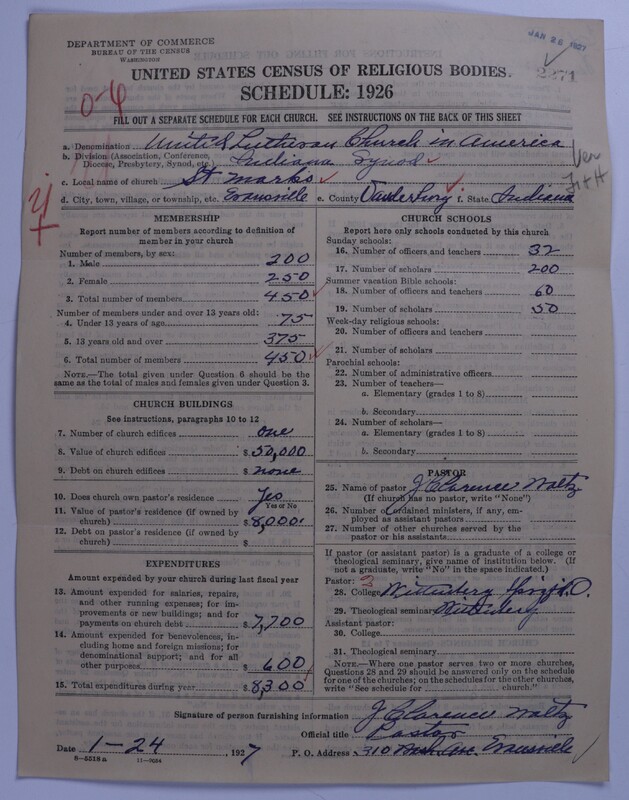 JAN 26 1927
2271
DEPARTMENT OF COMMERCE
BUREAU OF THE CENSUS
WASHINGTON
UNITED STATES CENSUS OF RELIGIOUS BODIES.
SCHEDULE: 1926
FILL OUT A SEPARATE SCHEDULE FOR EACH CHURCH. SEE INSTRUCTIONS ON THE BACK OF THIS SHEET
a. Denomination United Lutheran Church in America
b. Division (Association, Conference, Diocese, Presbytery, Synod, etc.) Indiana Synod
c. Local name of church St Marks
d. City, town, village, or township, etc. Evansville e. County Vanderburg f. State Indiana
MEMBERSHIP
Report number of members according to definition of
member in your church
Number of members, by sex:
1. Male 200
2. Female 250
3. Total number of members 450
Number of members under and over 13 years old:
4. Under 13 years of age 75
5. 13 years old and over 375
6. Total number of members 450
NOTE.—The total given under Question 6 should be the
same as the total of males and females given under Question 3.
CHURCH BUILDINGS
See instructions, paragraphs 10 to 12
7. Number of church edifices one
8. Value of church edifices $ 50,000
9. Debt on church edifices $ none
10. Does church own pastor's residence Yes
Yes or No
11. Value of pastor's residence (if owned by
church) $ 8,000
12. Debt on pastor's residence (if owned by
church) $
EXPENDITURES
Amount expended by your church during last fiscal year
13. Amount expended for salaries, repairs,
and other running expenses; for im-
provements or new buildings; and for
payments on church debt $ 7,700
14. Amount expended for benevolences, in-
cluding home and foreign missions; for
denominational support; and for all
other purposes $ 600
15. Total expenditures during year $ 8300
CHURCH SCHOOLS
Report here only schools conducted by this church
Sunday schools:
16. Number of officers and teachers 32
17. Number of scholars 200
Summer vacation Bible schools:
18. Number of officers and teachers 60
19. Number of scholars 50
Week-day religious schools:
20. Number of officers and teachers
21. Number of scholars
Parochial schools:
22. Number of administrative officers
23. Number of teachers—
a. Elementary (grades 1 to 8)
b. Secondary
24. Number of scholars—
a. Elementary (grades 1 to 8)
b. Secondary
PASTOR
25. Name of pastor J Clarence Waltz
(If church has no pastor, write "None")
26. Number of ordained ministers, if any, em-
ployed as assistant pastors
27. Number of other churches served by the
pastor or his assistants
If pastor (or assistant pastor) is a graduate of a college or
theological seminary, give name of institution below. (If
not a graduate, write "No" in the space indicated.)
Pastor: 3
28. College Wittenberg O.
29. Theological seminary Wittenberg
Assistant pastor:
30. College
31. Theological seminary
NOTE.—Where one pastor serves two or more churches,
Questions 28 and 29 should be answered only on the schedule
for one of the churches; on the schedules for the other churches,
write "See schedule for church."
Signature of person furnishing information J Clarence Waltz
Official title Pastor
Date 1-24, 1927 P. O. Address 310 Evansville
8—5518a 11—9034